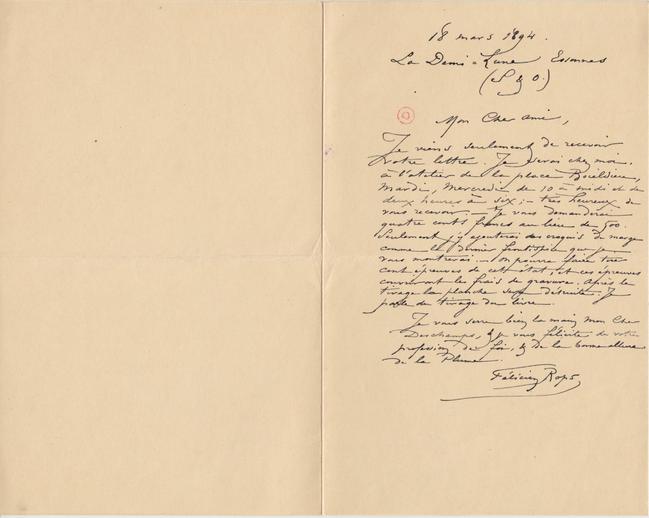 18 mars 1894.
La Demi-Lune Essonnes
(S & O.)
Mon Cher ami,
Je viens seulement de recevoir
votre lettre. Je serai chez moi,
à l'atelier de la place Boieldieu,
Mardi, Mercredi de 10 à midi et de
deux heures à six; – très heureux de
vous recevoir. – Je vous demanderai
quatre cents francs au lieu de 500.
Seulement j'y ajouterai des croquis de marge
comme le dernier frontispice que je
vous montrerai. – on pourra faire tirer
cent épreuves de cet état, et ces épreuves
couvriront les frais de gravure. Après le
tirage la planche sera détruite. Je
parle du tirage du livre.
Je vous serre bien la main, Mon Cher
Deschamps, & je vous félicite de votre
profession de foi, & de la bonne allure
de la Plume.
Félicien Rops